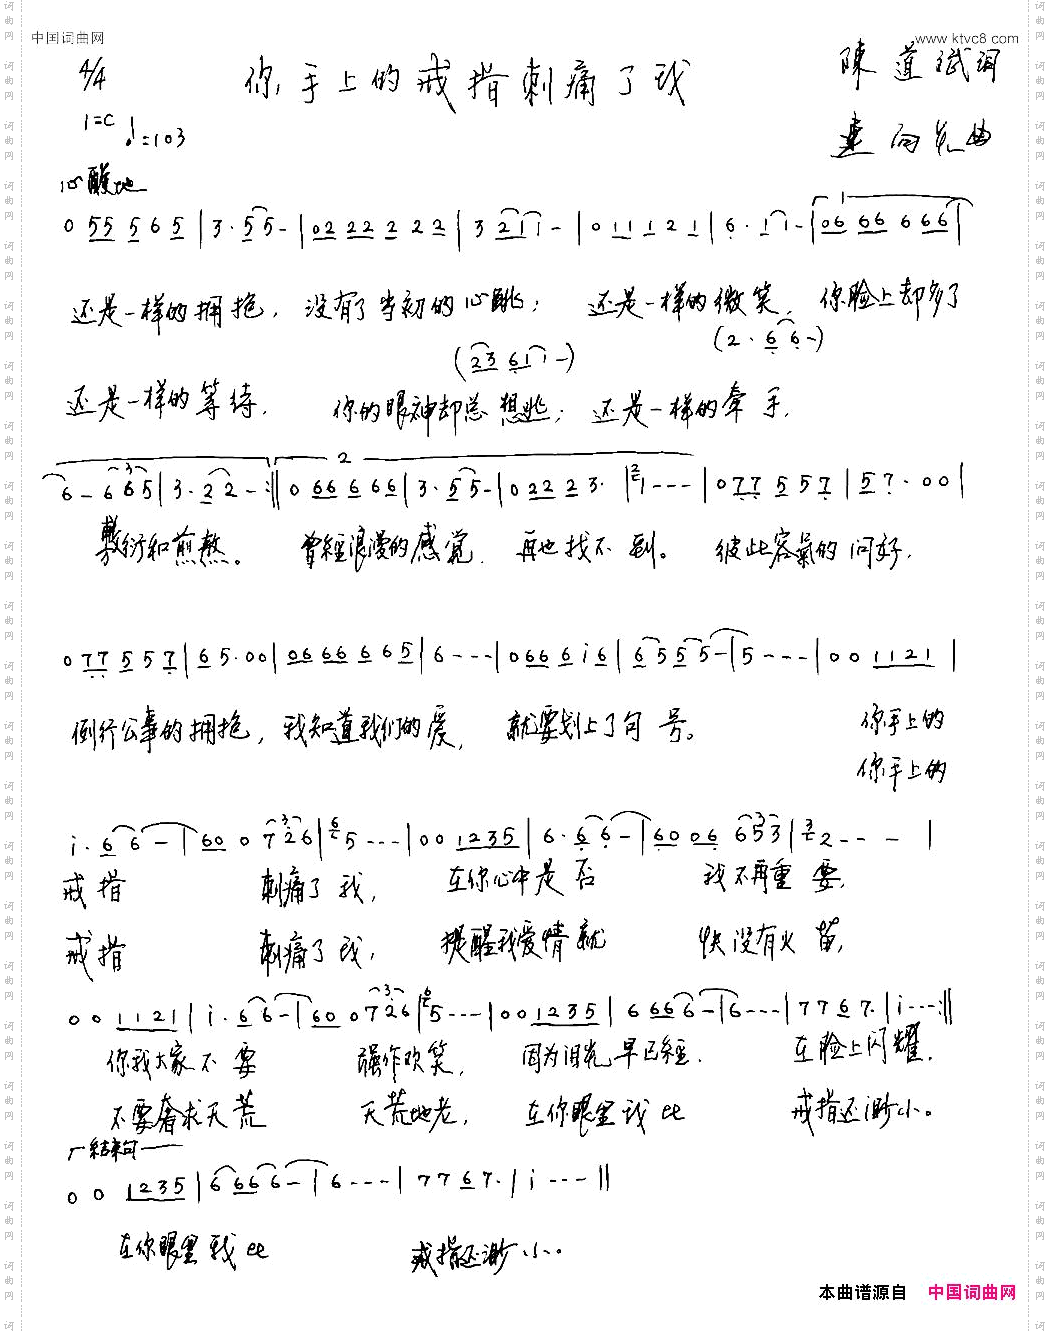 中国词曲网
www.ktvc8.com
4/4 你手上的戒指刺痛了我 陳道斌词
1=C ♩=103
曲
心酸地
0 55 5 6 5 | 3· 5 5 - | 02 22 2 2 2 | 3 2 1 1 - | 0 1 1 1 2 1 | 6· 1 1 - | 06 66 6 66 |
还是一样的拥抱，没有了当初的心跳；还是一样的微笑，你脸上却多了
(2 3 6 1 1 -) (2· 6 6 -)
还是一样的等待，你的眼神却总想逃；还是一样的牵手，
6 - 6 6 5 | 3· 2 2 - :|| 0 66 6 66 | 3· 5 5 - | 0 22 2 3· | 1 - - - | 0 77 5 5 7 | 5 7· 0 0 |
敷衍和煎熬。曾經浪漫的感觉，再也找不到。彼此客氣的问好，
0 77 5 5 7 | 6 5· 0 0 | 06 66 6 6 5 | 6 - - - | 0 66 6 i 6 | 6 5 5 5 - | 5 - - - | 0 0 1 1 2 1 |
例行公事的拥抱，我知道我们的爱，就要划上了句号。你手上的
你手上的
i· 6 6 - | 60 0 7 2 6 | 5 - - - | 0 0 1 2 3 5 | 6· 6 6 - | 60 06 6 5 3 | 2 - - - |
戒指 刺痛了我，在你心中是否 我不再重要，
戒指 刺痛了我，提醒我爱情就 快没有火苗，
0 0 1 1 2 1 | i· 6 6 - | 60 0 7 2 6 | 5 - - - | 0 0 1 2 3 5 | 6 6 6 6 - | 6 - - - | 7 7 6 7· | i - - - :||
你我大家不要 强作欢笑，因为泪光早已經，在脸上闪耀，
不要奢求天荒 天荒地老，在你眼里我比 戒指还渺小。
结束句
0 0 1 2 3 5 | 6 6 6 6 - | 6 - - - | 7 7 6 7· | i - - - ||
在你眼里我比 戒指还渺小。
本曲谱源自 中国词曲网